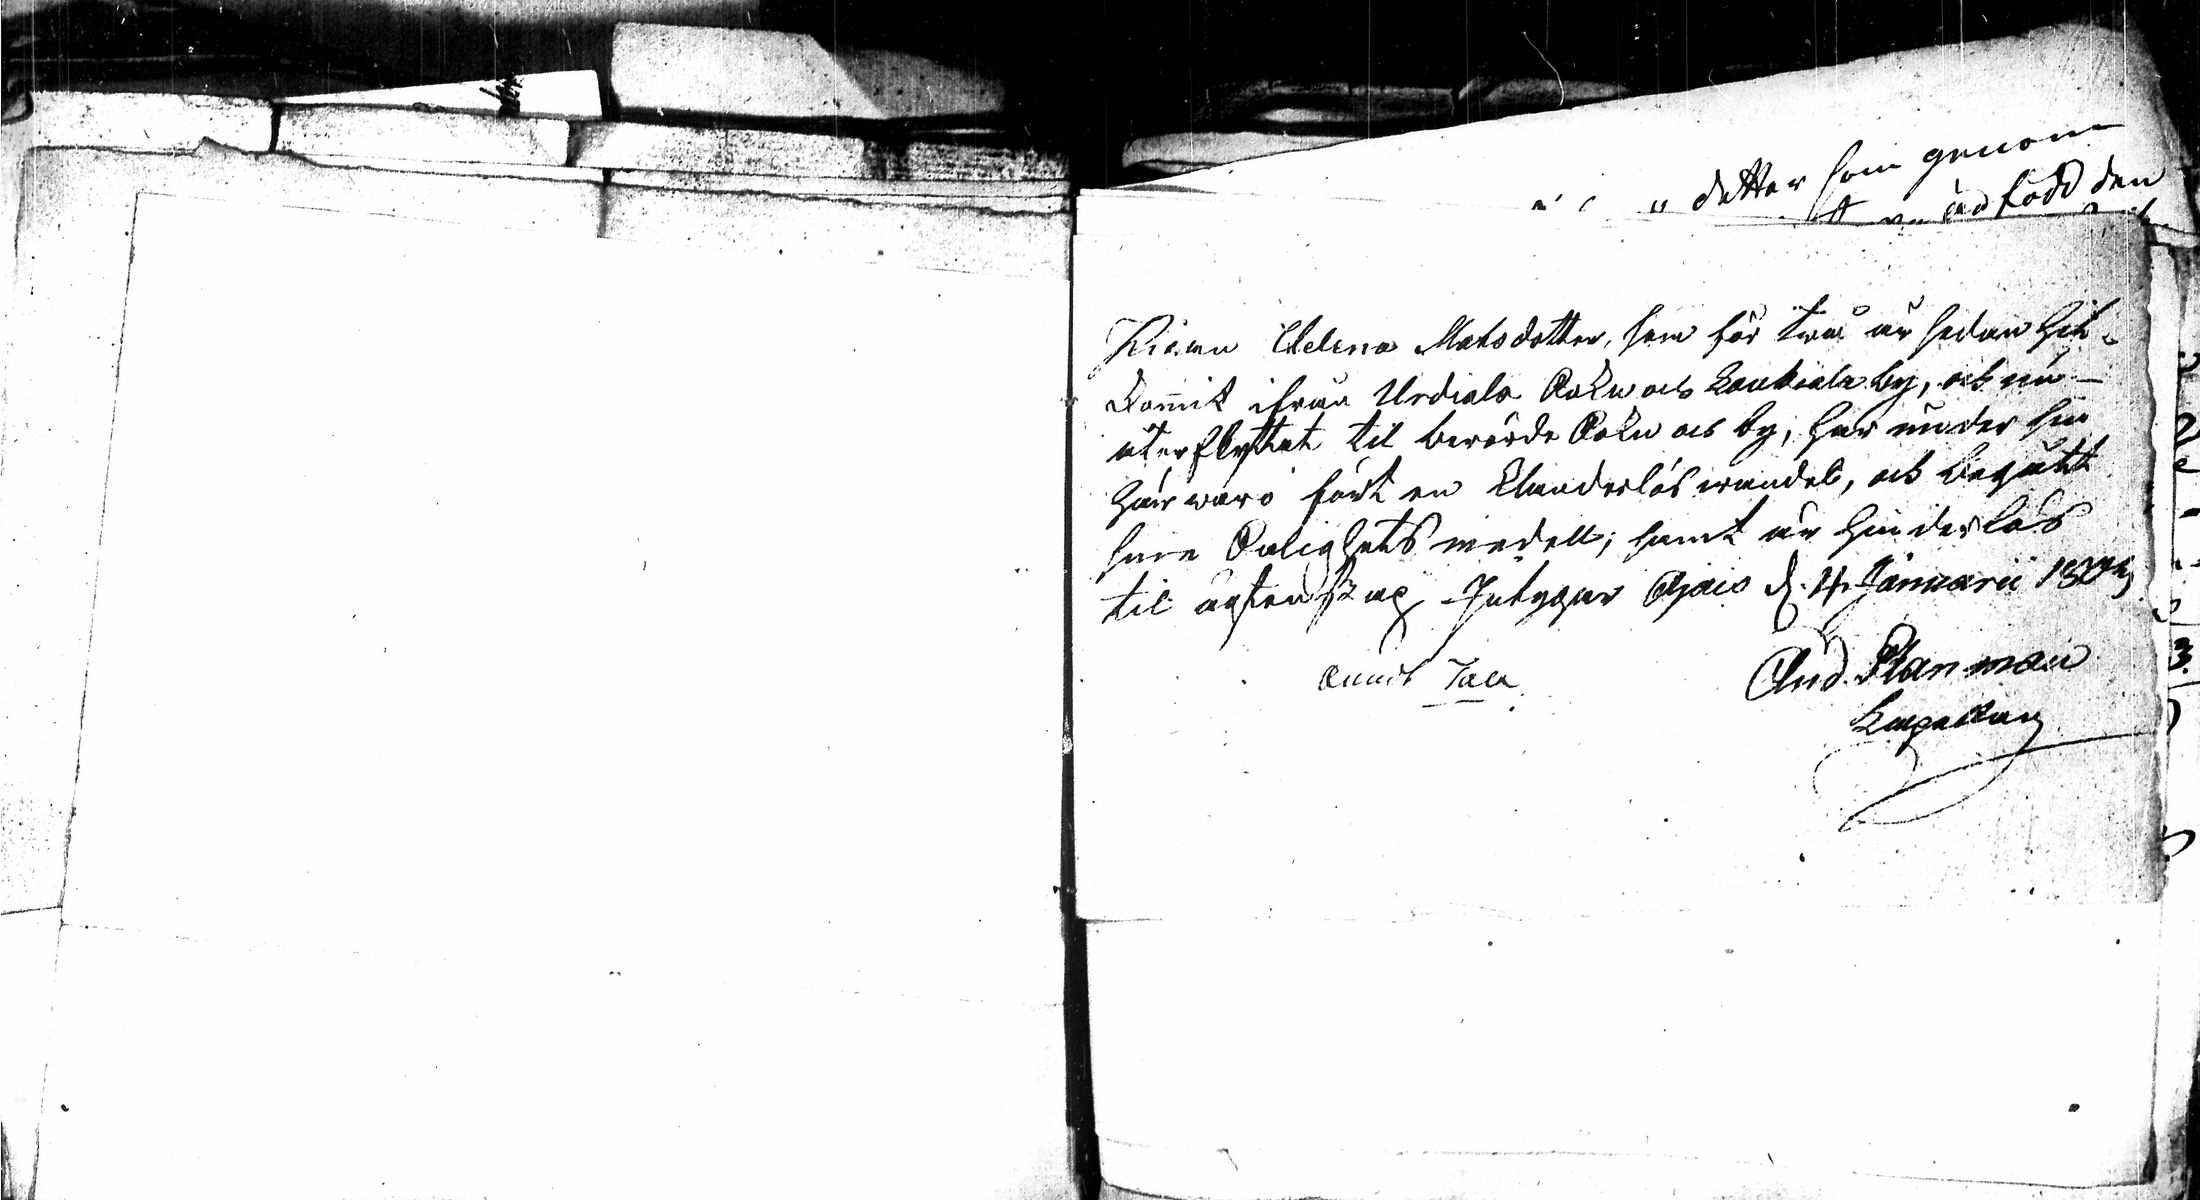 dotter som genom
född den
Pigan Helena Matsdotter, som för twå år sedan hit-
kom̄it ifrån Urdiala Sokn och Laukiala by, och nu
återflyttat til berörde Sokn och by, har under sin
härwaro fört en klanderlös wandel, och begått
sine Salighets medell; samt är hinderlös
til ägtenskap Intygar Ajais d. 4. Januarii
And. Planman
Capellan